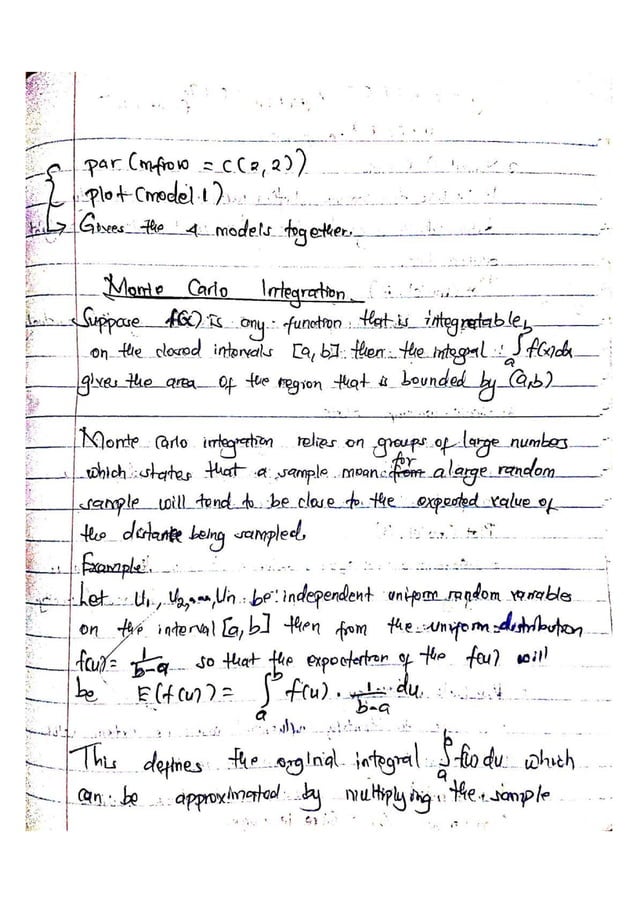 par (mfrow = c(2,2))
plot (model 1)
Gives the 4 models together.
Monte Carlo Integration
Suppose f(x) is any function that is integratable
on the closed intervals [a, b] then the integral ∫ₐᵇ f(x)dx
gives the area of the region that is bounded by (a,b)
Monte Carlo integration relies on groups of large numbers
which states that a sample mean for a large random
sample will tend to be close to the expected value of
the distance being sampled.
Example:
Let U1, U2, ..., Un be independent uniform random variables
on the interval [a, b] then from the uniform distribution
f(u) = 1/b-a so that the expectation of the f(u) will
be E(f(u)) = ∫ₐᵇ f(u) . 1/b-a du
This defines the orginal integral ∫ₐᵇ f(u) du which
can be approximated by multiplying the sample